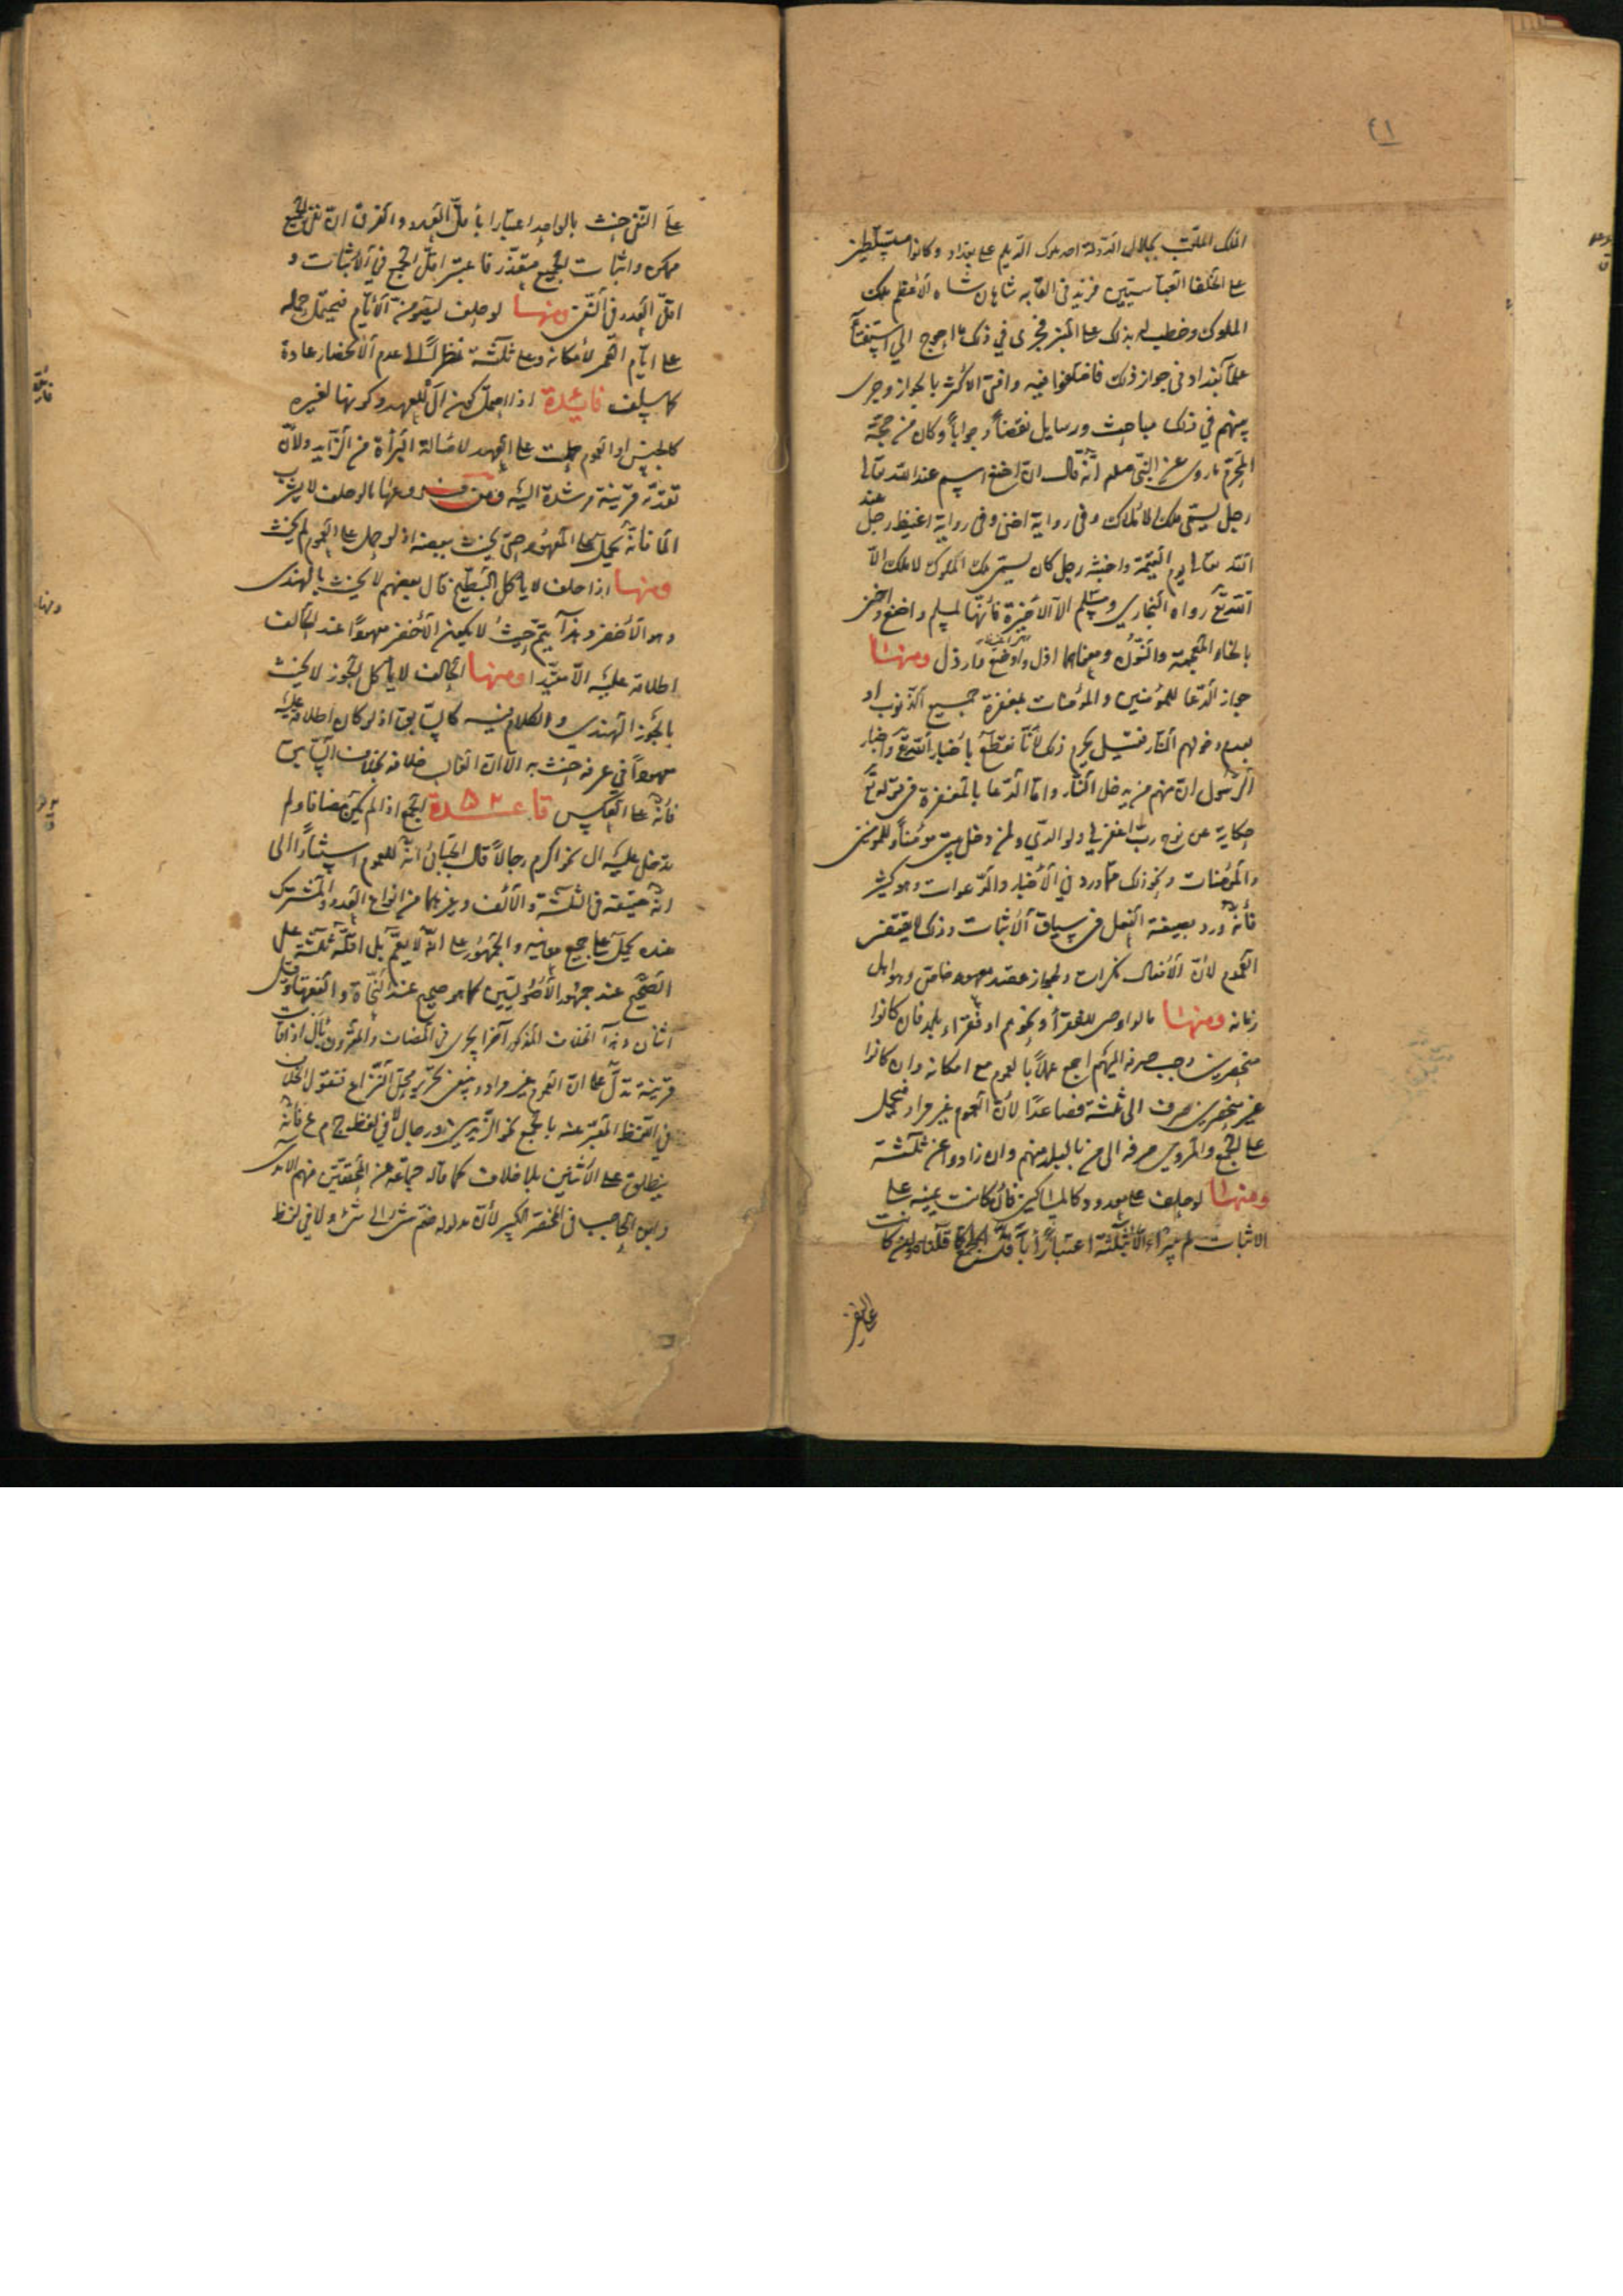 ٤١
الملك الملقب بجلال الدولة احد ملوك الديلم على بغداد وكانوا متسلطين
على الخلفا العباسيين فزيد في القابه شاهان شاه الاعظم ملك
الملوك وخطب له بذلك على المنبر فجرى في ذلك ما احوج الى استفتاء
علما بغداد في جواز ذلك فاختلفوا فيه وافتى الاكثر بالجواز وجرى
بينهم في ذلك مباحث ورسايل نقضا وجوابا وكان من حجة
المحرم ما روى عن النبي صلعم انه قال ان اخنع اسم عند الله تعالى
رجل يسمى ملك الاملاك وفي رواية اخنى وفي رواية اغيظ رجل عند
الله تعالى يوم القيمة واخبثه رجل كان يسمى ملك الملوك لا ملك الا
الله تع رواه البخاري ومسلم الا الاخيرة فانها لمسلم واخنع واخنى
بالخاء المعجمة والنون ومعناهما اذل واوضع وارذل ومنها
جواز الدعا للمؤمنين والمؤمنات بمغفرة جميع الذنوب او
بعدم دخولهم النار فقيل يحرم ذلك لانا نقطع باخبار الله تع واخبار
الرسول ان منهم من يدخل النار واما الدعا بالمغفرة في قوله تع
حكاية عن نوح رب اغفر لي ولوالدي ولمن دخل بيتي مؤمنا وللمؤمنين
والمؤمنات ونحو ذلك مما ورد في الاخبار والدعوات وهو كثير
فانه ورد بصيغة الفعل في سياق الاثبات وذلك لا يقتضى
العموم لان الافعال نكرات ولجواز قصد معهود خاص وهو اهل
زمانه ومنها ما لو اوصى للفقرا ونحوهم او فقراء بلد فان كانوا
منحصرين وجب صرفه اليهم اجمع عملا بالعموم مع امكانه وان كانوا
غير منحصرين صرف الى ثلثة فصاعدا لان العموم غير مراد فيحمل
على الجمع والمروي صرفه الى من بالبلد منهم وان زادوا عن ثلثة
ومنها لو حلف على معدود كالمساكين فان كانت يمينه على
الاثبات لم يبرا الا بثلثة اعتبارا باقل الجمع كما قلناه وان كانت
على النفي
على النفي حنث بالواحد اعتبارا باقل العدد والفرق ان نفى الجميع
ممكن واثبات الجميع متعذر فاعتبر اقل الجمع في الاثبات و
اقل العدد في النفى ومنها لو حلف ليصومن الايام فيحتمل حمله
على ايام العمر لامكانه وعلى ثلثة نظرا الى عدم الانحصار عادة
كما سلف فائدة اذا احتمل كون ال للعهد وكونها لغيره
كالجنس او العموم حملت على العهد لاصالة البرأة من الزايد ولان
تقدمه قرينة مرشدة اليه ومن فروعها ما لو حلف لا يشرب
الما فانه يحمل على المعهود حتى يحنث ببعضه اذ لو حمل على العموم لم يحنث
ومنها اذا حلف لا ياكل البطيخ قال بعضهم لا يحنث بالهندى
وهو الاخضر وهذا يتم حيث لا يكون الاخضر معهودا عند الحالف
اطلاقه عليه الا مقيدا ومنها الحالف لا ياكل الجوز لا يحنث
بالجوز الهندي والكلام فيه كالسابق اذ لو كان اطلاقه عليه
معهودا في عرفه حنث به الا ان الغالب خلافه بخلاف السابق
فانه على العكس قاعدة ٥٢ الجمع اذا لم يكن مضافا ولم
تدخل عليه ال نحو اكرم رجالا قال الجبائي انه للعموم استنادا الى
انه حقيقة في الثلثة والالف وغيرهما من انواع العدد والمشترك
عنده يحمل على جميع معانيه والجمهور على انه لا يعم بل اقله ثلثة على
الصحيح عند جمهور الاصوليين كما هو صحيح عند النحاة والفقهاء وقيل
اثنان وهذا الخلاف المذكور آخرا يجرى في المضاف والمقرون بال اذا قامت
قرينة تدل على ان العموم غير مراد وينبغى تحرير محل النزاع فنقول الخلاف
في اللفظ المعبر عنه بالجمع نحو الزيدين ورجال لا في لفظ ج م ع فانه
ينطلق على الاثنين بلا خلاف كما قاله جماعة من المحققين منهم الآمدى
وابن الحاجب في المختصر الكبير لان مدلوله ضم شئ الى شئ ولا في لفظ
فائدة
ومنها